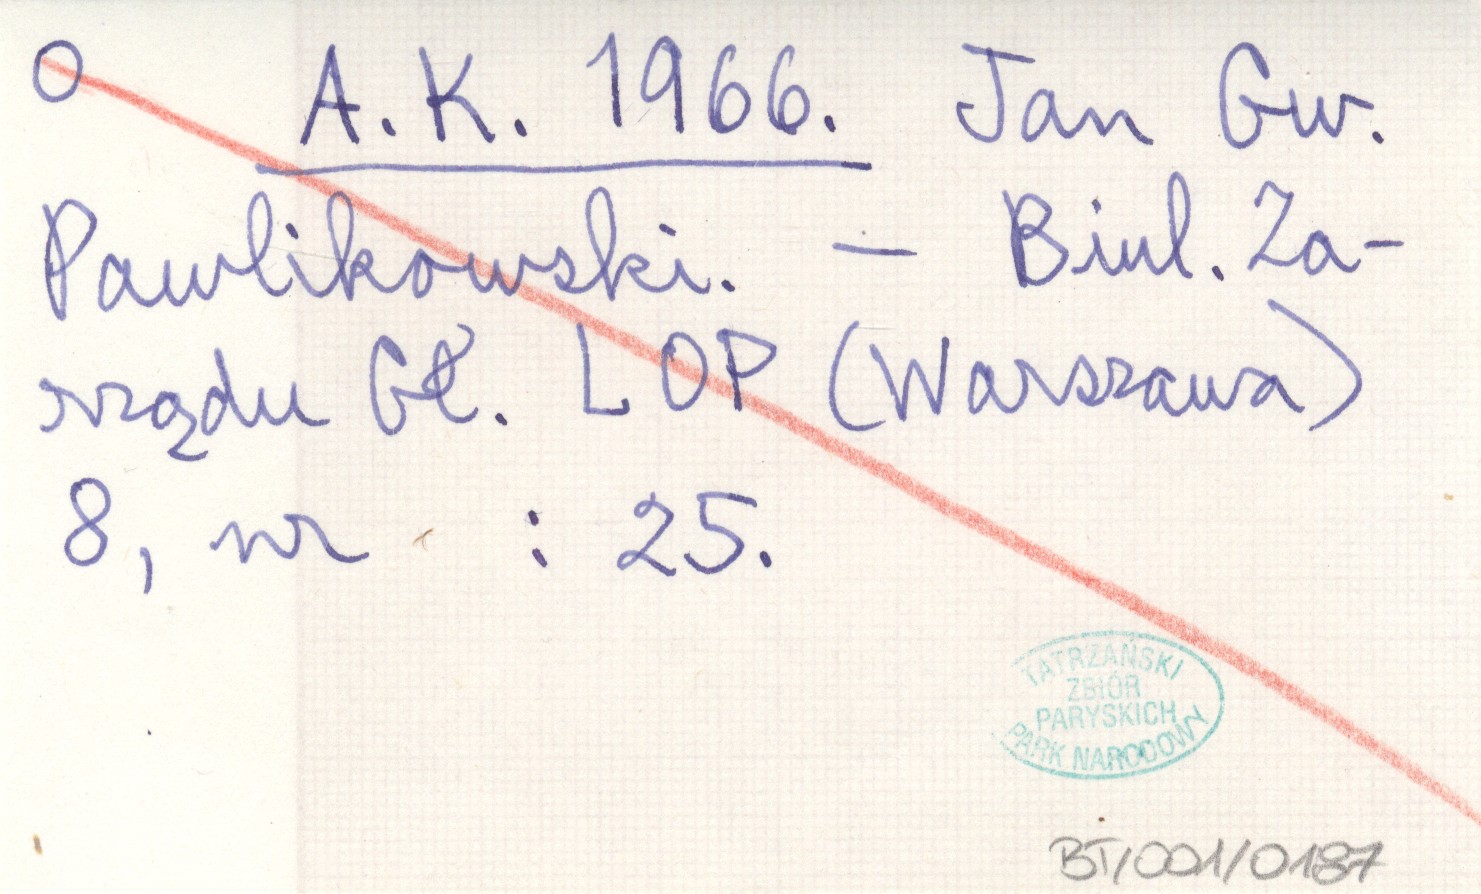 O A.K. 1966. Jan Gw.
Pawlikowski. — Biul. Za-
rządu Gł. LOP (Warszawa)
8, nr : 25.
TATRZAŃSKI
ZBIÓR
PARYSKICH
PARK NARODOWY
BT/001/0187